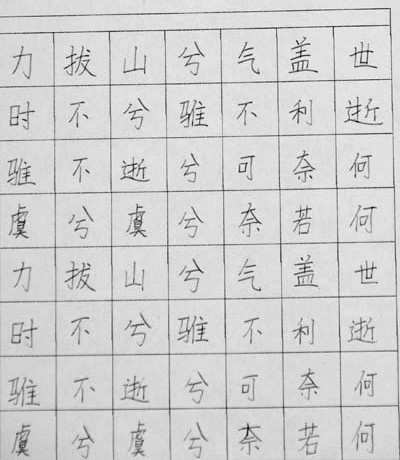 力拔山兮气盖世
时不兮骓不利逝
骓不逝兮可奈何
虞兮虞兮奈若何
力拔山兮气盖世
时不兮骓不利逝
骓不逝兮可奈何
虞兮虞兮奈若何